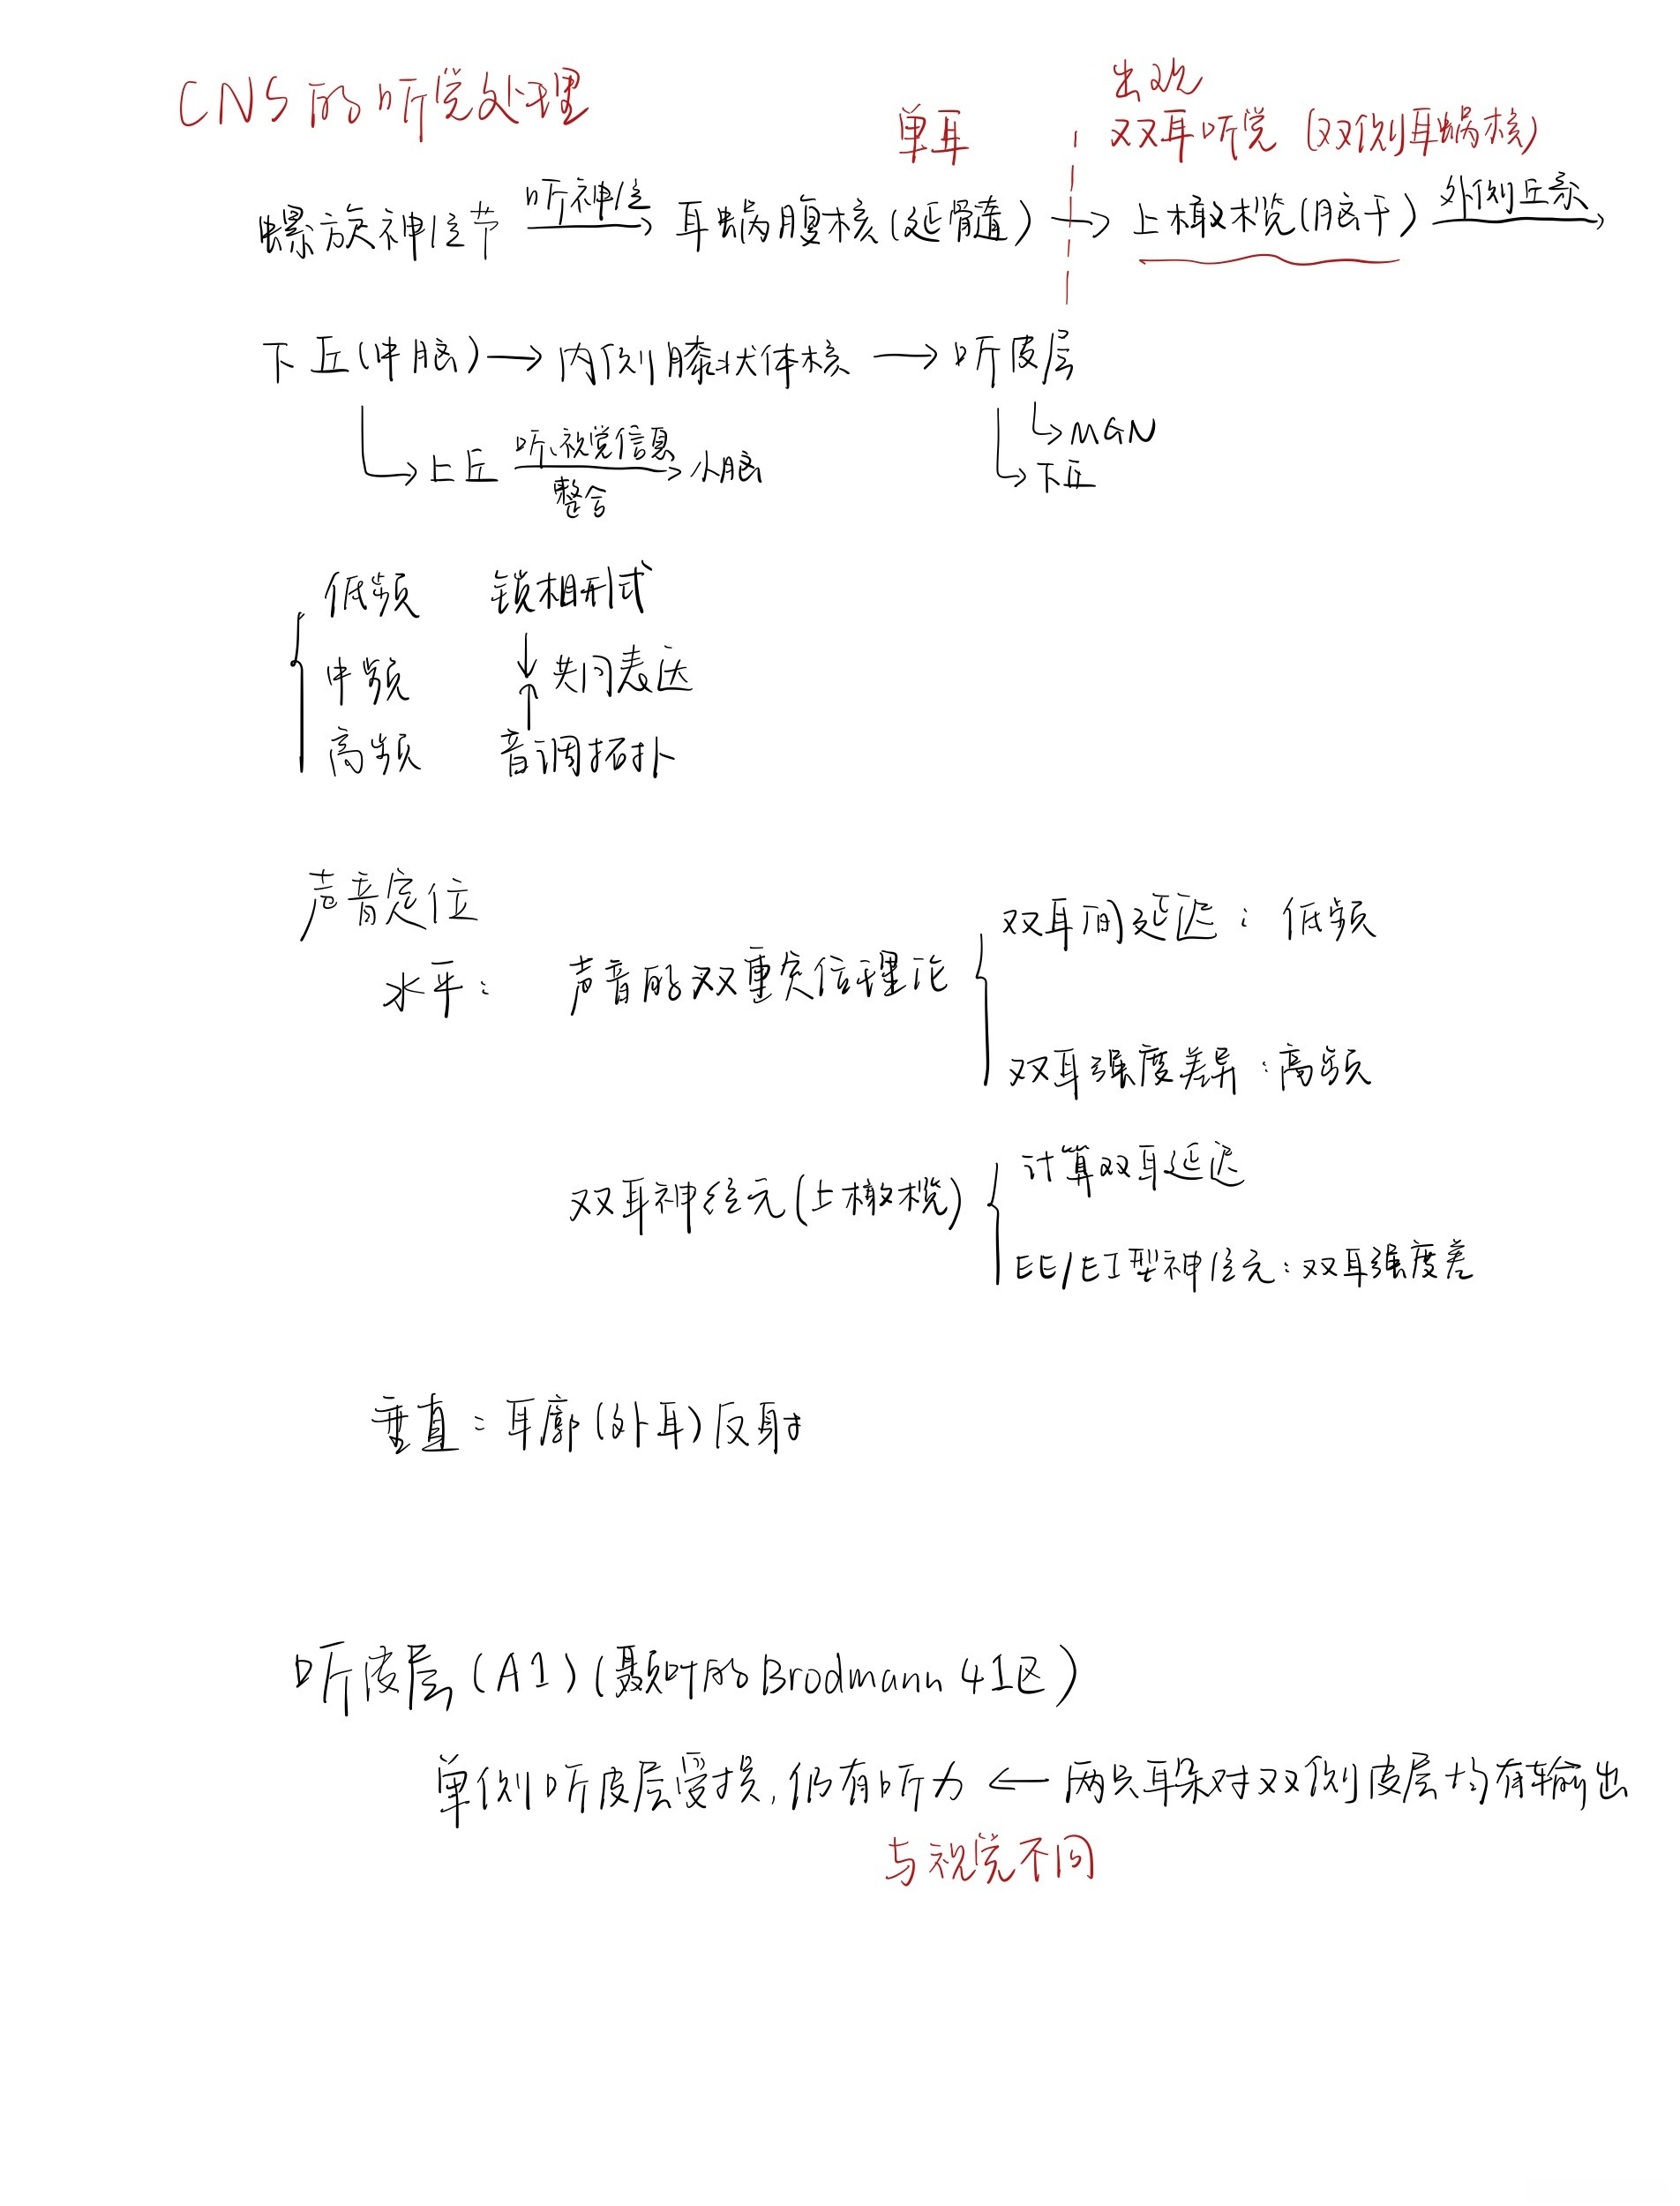 CNS的听觉处理
单耳
出现
双耳听觉（双侧耳蜗核）
螺旋神经节 听神经→ 耳蜗腹核（延髓）→ 上橄榄（脑干） 外侧丘系→
下丘（中脑）→ 内侧膝状体核 → 听皮层
→MGN
→上丘 听、视觉信息整合→ 小脑
→下丘
低频 锁相形式
中频 ↓↑ 共同表达
高频 音调拓扑
声音定位
水平： 声音的双重定位理论
双耳间延迟：低频
双耳强度差异：高频
双耳神经元（上橄榄）
计算双耳延迟
EE/EI型神经元：双耳强度差
垂直：耳廓（外耳）反射
听皮层（A1）（颞叶的Brodmann 41区）
单侧听皮层受损，仍有听力 ← 两只耳朵对双侧皮层均有输出
与视觉不同